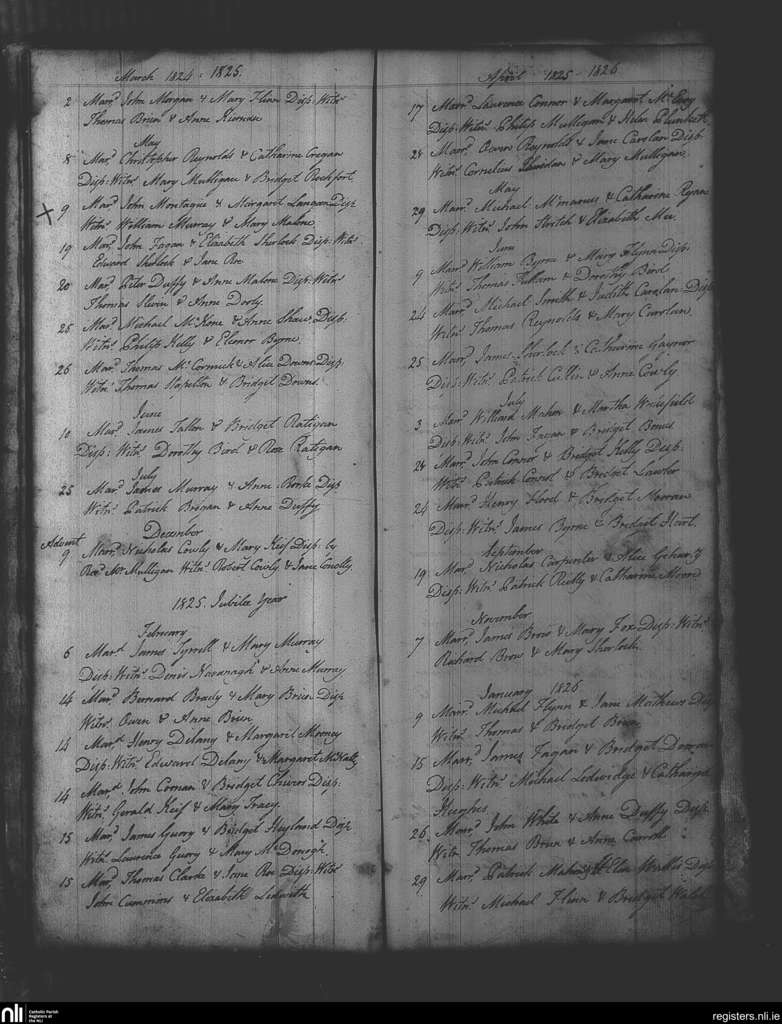 March 1824 : 1825.
2 Mar.d John Morgan & Mary Flinn Disp: Witn.s
Thomas Brien & Anne Kiernan
May
8 Mar.d Christopher Reynolds & Catharine Cregan
Disp: Witn.s Mary Mulligan & Bridget Rochfort
X 9 Mar.d John Montague & Margaret Langan Disp
Witn.s William Murray & Mary Malone
19 Mar.d John Fagan & Elizabeth Sherlock Disp: Witn.s
Edward Sherlock & Jane Roe
20 Mar.d Peter Duffy & Anne Malone Disp: Witn.s
Thomas Slevin & Anne Dorly
25 Mar.d Michael McKone & Anne Shaw Disp.
Witn.s Philip Kelly & Elenor Byrne
26 Mar.d Thomas McCormick & Alice Downs Disp
Witn.s Thomas Napelton & Bridget Downs
June
10 Mar.d James Fallon & Bridget Ratigan
Disp: Witn.s Dorothy Bird & Rose Ratigan
July
25 Mar.d James Murray & Anne Rorke Disp
Witn.s Patrick Brogan & Anne Duffy
December
Advent 9 Marr.d Nicholas Cowly & Mary Keif Disp: by
Rev.d Mr Mulligan Witn.s Robert Cowly & Jane Conolly
1825. Jubilee Year
February
6 Mar.d James Tyrrell & Mary Murray
Disp: Witn.s Denis Kavanagh & Anne Murray
14 Mar.d Bernard Brady & Mary Brien Disp
Witn.s Owen & Anne Brien
14 Mar.d Henry Delany & Margaret Mooney
Disp: Witn.s Edward Delany & Margaret McNally
14 Mar.d John Coonan & Bridget Chivers Disp:
Witn.s Gerald Keif & Mary Tracy
15 Mar.d James Guory & Bridget Heyland Disp
Witn.s Lawrence Guory & Mary McDonogh
15 Mar.d Thomas Clarke & Jane Roe Disp: Witn.s
John Cummons & Elizabeth Ledwith
April 1825 - 1826
17 Marr.d Lawrence Connor & Margaret McEvoy
Disp: Witn.s Philip Mulligan & Helen Plunkett
28 Marr.d Owen Reynolds & Jane Carolan Disp
Witn.s Cornelius & Mary Mulligan
May
29 Marr.d Michael Mcmanus & Catharine Ryan
Disp: Witn.s John & Elizabeth
June
9 Mar.d William Byrne & Mary Flynn Disp:
Witn.s Thomas Fullam & Dorothy Bird
24 Marr.d Michael Smith & Judith Carolan Disp
Witn.s Thomas Reynolds & Mary Carolan
25 Marr.d James Sherlock & Catharine Gaynor
Disp: Witn.s Patrick Cullen & Anne Cowly
July
3 Marr.d William Mahon & Martha Wakefield
Disp: Witn.s John Fagan & Bridget
24 Marr.d John Connor & Bridget Kelly Disp:
Witn.s Patrick Connor & Bridget Lawler
24 Marr.d Henry Flood & Bridget Noonan
Disp: Witn.s James Byrne & Bridget Hart.
September
19 Mar.d Nicholas Carpenter & Alice
Disp: Witn.s Patrick Reilly & Catharine Moore
November
7 Marr.d James Brow & Mary Fox Disp: Witn.s
Richard Brow & Mary Sherlock.
January 1826
9 Marr.d Michael Flynn & Jane Matthews Disp
Witn.s Thomas & Bridget Brien
15 Marr.d James Fagan & Bridget
Disp: Witn.s Michael Ledwidge & Catharine
Hughes
26 Marr.d John White & Anne Duffy Disp
Witn.s Thomas Brien & Anne Carroll
29 Marr.d Patrick Mahon & Ellen Disp
Witn.s Michael Flinn & Bridget
nli Catholic Parish
Registers at
the NLI
registers.nli.ie